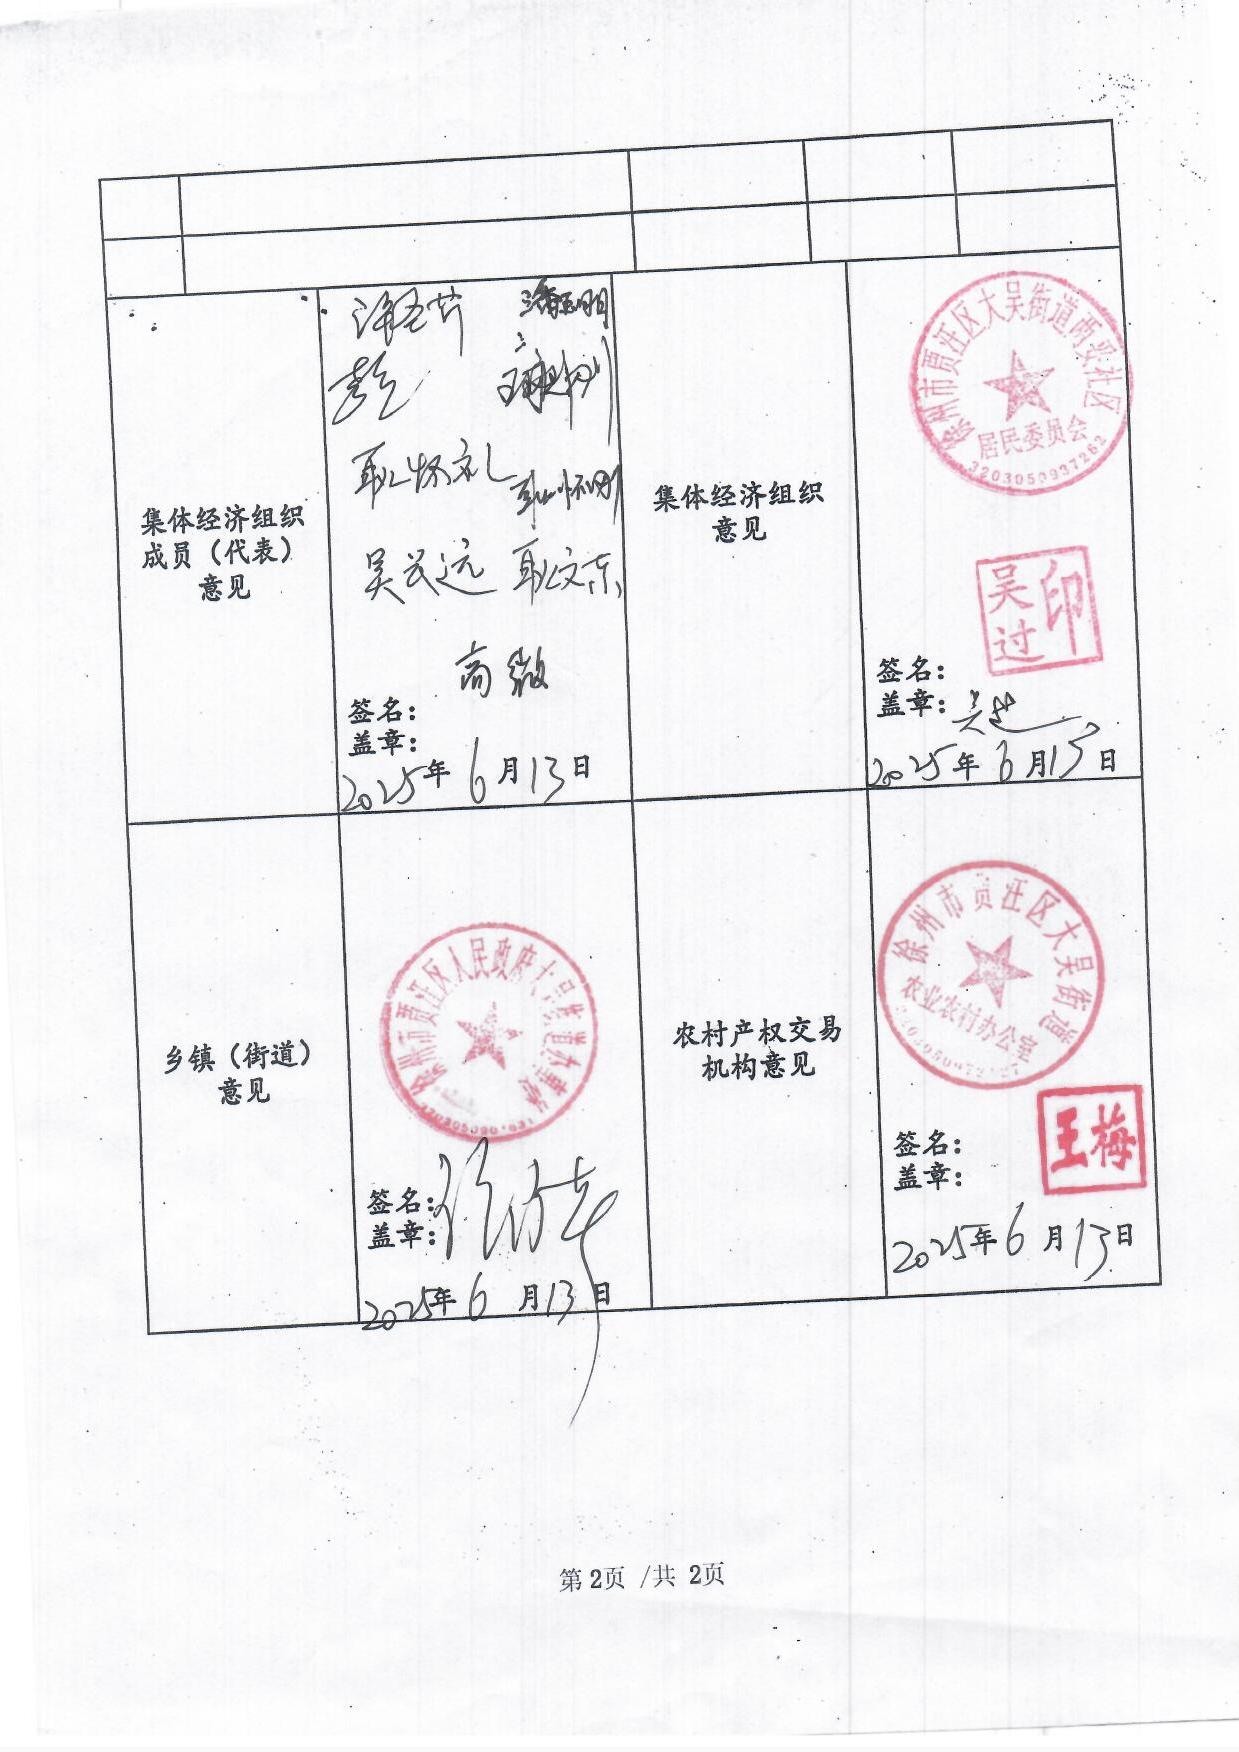 集体经济组织
成员（代表）
意见
耿怀礼
吴民远 耿文东
高微
签名：
盖章：
2025年6月13日
集体经济组织
意见
徐州市贾汪区大吴街道两山社区
居民委员会
3203050937262
吴过印
签名：
盖章：
2025年6月13日
乡镇（街道）
意见
徐州市贾汪区人民政府大吴街道办事处
签名：
盖章：
2025年6月13日
农村产权交易
机构意见
徐州市贾汪区大吴街道
农业农村办公室
王梅
签名：
盖章：
2025年6月13日
第2页 /共 2页